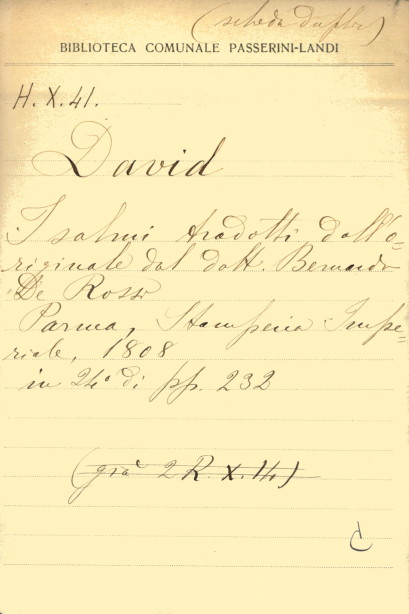 (scheda dupl.)
BIBLIOTECA COMUNALE PASSERINI-LANDI
H. X. 41.
David
I salmi tradotti dall'o=
riginale dal dott. Bernardo
De Rossi
Parma, Stamperia Impe=
riale, 1808
in 24° di pp. 232
(già 2 R. X. 14)
C